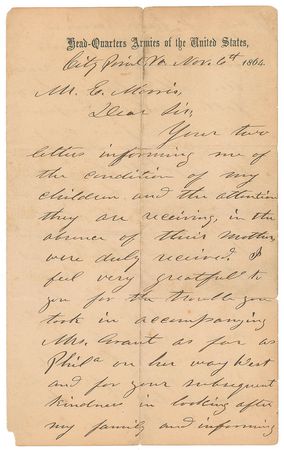 Head-Quarters Armies of the United States,
City Point Va. Nov. 6th 1864.
Mr. E. Morris,
Dear Sir;
Your two
letters informing me of
the condition of my
children and the attention
they are receiving, in the
absence of their Mother,
were duly received. I
feel very greatful to
you for the trouble you
took in accompanying
Mrs. Grant as far as
Phila on her way West
and for your subsequent
kindness in looking after
my family and informing